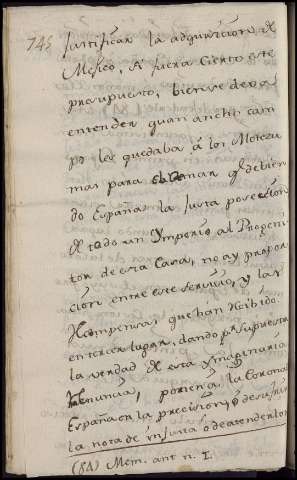 745
Justificar la adquisicion de
Mexico, A fuera cierto este
presupuesto, bien se dexa
entender quan ancho cam
po les quedaba á los Motezu
mas para clamar q̃ debien
do España la justa posession
de todo un Ymperio al Progeni
tor de esta Casa, no ay propor
ción entre este servicio, y las
Recompensas, que hán Recibido.
en tercer lugar, dando pr supuesta
la verdad de esta Ymaginaria
Renuncia, ponen a la Corona
España en la precision, o de sufrir
la nota de injusta, o de atender los
(8A) Mem. ant n. I.